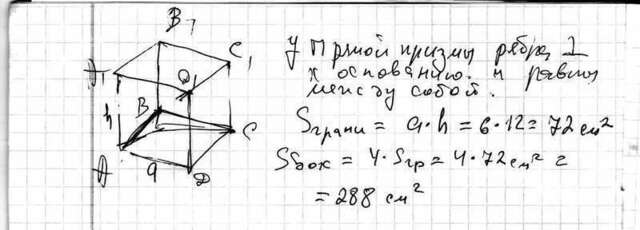 B1
C1
A1
D1
B
h
C
A
a
D
У прямой призмы ребра ⊥
к основанию и равны
между собой.
Sграни = a·h = 6·12 = 72 см²
Sбок = 4·Sгр = 4·72 см² =
= 288 см²